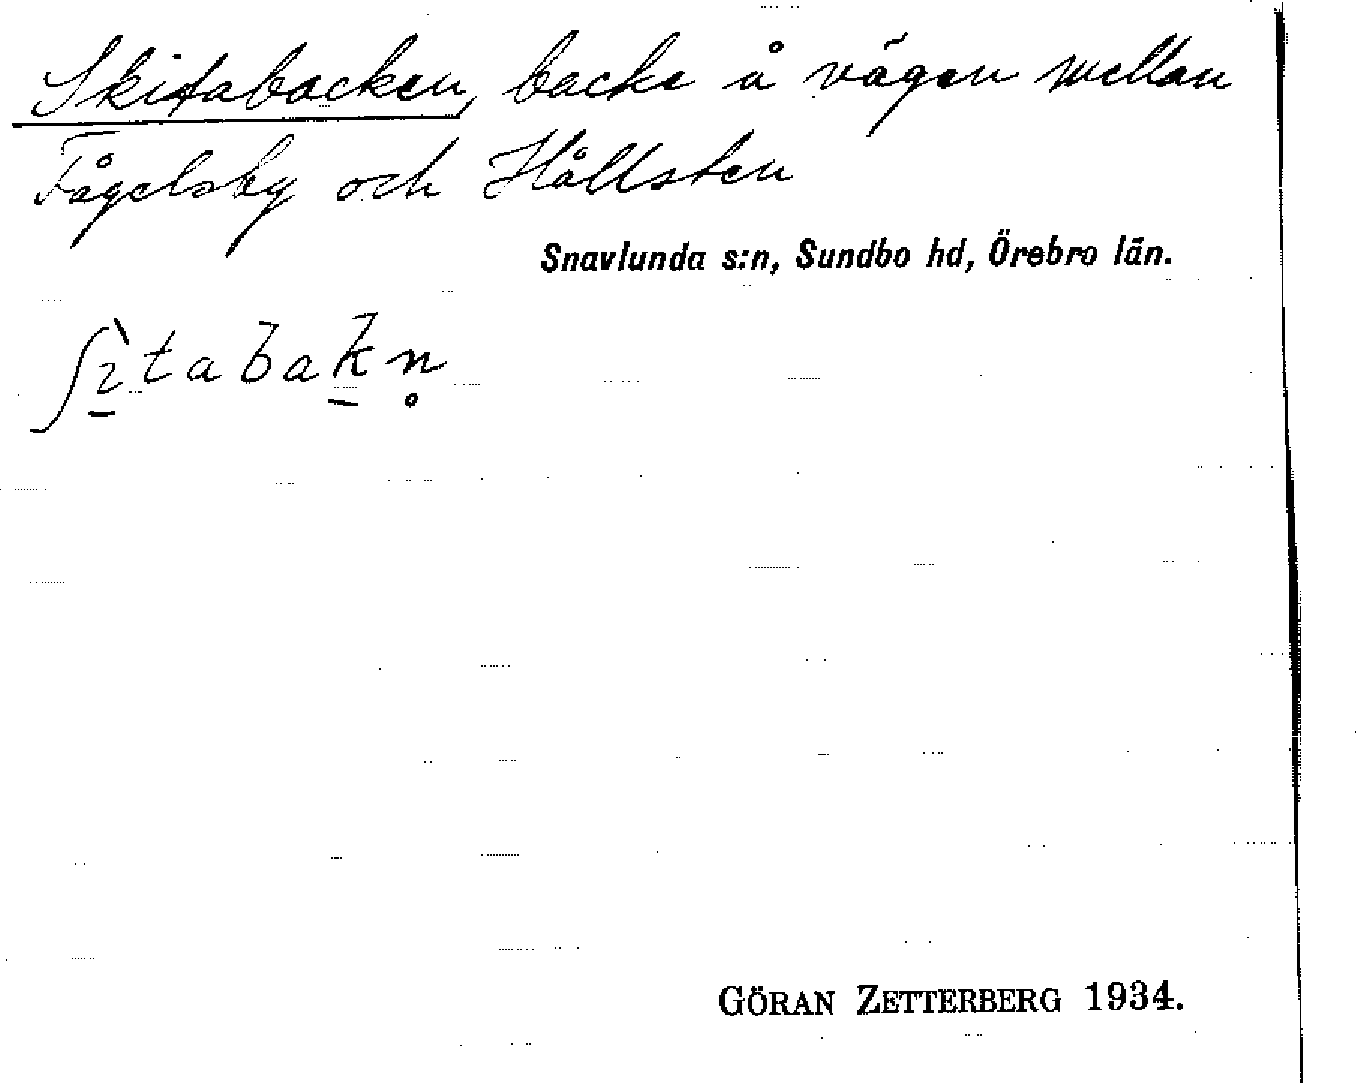 Skitabacken, backe å vägen mellan
Fågelsby och Hållsten
Snavlunda s:n, Sundbo hd, Örebro län.
GÖRAN ZETTERBERG 1934.